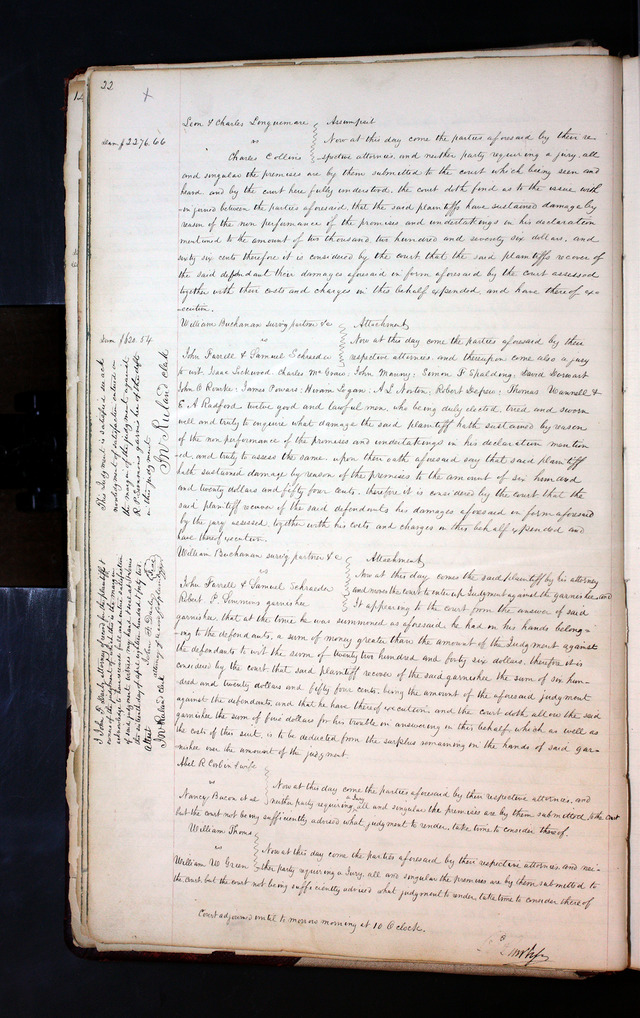 22
Leon & Charles Longuemare Assumpsit
Dam $2276.66
vs Now at this day come the parties aforesaid by their re-
Charles Collins -spective attornies, and neither party requiring a jury, all
and singular the premises are by them submitted to the court which being seen and
heard and by the court here fully understood, the court doth find as to the issue with
-in joined between the parties aforesaid, that the said plaintiffs have sustained damage by
reason of the non performance of the promises and undertakings in his declaration
mentioned to the amount of two thousand two hundred and seventy six dollars, and
sixty six cents therefore it is considered by the court that the said plaintiffs recover of
the said defendant their damages aforesaid in form aforesaid by the court assessed
together with their costs and charges in this behalf expended, and have thereof ex-
-ecution.
William Buchanan surving partner &c Attachment
Dam $620.54
vs Now at this day come the parties aforesaid by their
John Farrell & Samuel Schraeder respective attornies, and thereupon come also a jury
to wit, Isaac Lockwood, Charles Mc Graw, John Mauny, Simon F Spalding, David Dorwart
John O Rourke, James Cowars, Hiram Logan, A. L. Norton, Robert Depew, Thomas Wannell &
E A Radford twelve good and lawful men, who being duly elected, tried and sworn
well and truly to enquire what damage the said plaintiff hath sustained by reason
of the non performance of the promises and undertakings in his declaration mention
-ed, and truly to assess the same, upon their oath aforesaid say that said plaintiff
hath sustained damage by reason of the premises to the amount of six hundred
and twenty dollars and fifty four cents. therefore it is considered by the court that the
said plaintiff recover of the said defendants his damages aforesaid in form aforesaid
by the jury assessed, together with his costs and charges in this behalf expended and
have thereof execution.
This Judgment is satisfied see ack
nowledgment of satisfaction entered on
the margin of the judgment against
R. P. Simmons garnishee of the defts
in this judgment
Jno Ruland clerk
William Buchanan surv'g partner &c Attachment
vs Now at this day comes the said plaintiff by his attorney
John Farrell & Samuel Schraeder and moves the court to enter up Judgment against the garnishee, and
Robert P. Simmons garnishee It appearing to the court from the answer of said
garnishee, that at the time he was summoned as aforesaid he had in his hands belong-
-ing to the defendants, a sum of money greater than the amount of the Judgment against
the defendants to wit the sum of twenty two hundred and forty six dollars. therefore it is
considered by the court that said plaintiff recover of the said garnishee the sum of six hun-
dred and twenty dollars and fifty four cents, being the amount of the aforesaid judgment
against the defendants, and that he have thereof execution. and the court doth allow the said
garnishee the sum of five dollars for his trouble in answering in this behalf, which as well as
the costs of this suit, is to be deducted from the surplus remaining in the hands of said gar-
nishee over the amount of the judgment.
I John F Darby attorney of record for the plaintiff
acknowledge to have received full and entire satisfaction
of said judgment
John F. Darby
attorney of record for plaintiff
Attest
Jno Ruland clerk
Abel R Corbin & wife
vs Now at this day come the parties aforesaid by their respective attornies, and
Nancy Bacon et al neither party requiring a Jury, all and singular the premises are by them submitted to the court
but the court not being sufficiently advised what judgment to render, take time to consider thereof.
William Thomas
vs Now at this day come the parties aforesaid by their respective attornies, and nei-
William W Green -ther party requiring a Jury, all and singular the premises are by them submitted to
the court, but the court not being sufficiently advised what judgment to render, take time to consider thereof
Court adjourned until to morrow morning at 10 O clock.